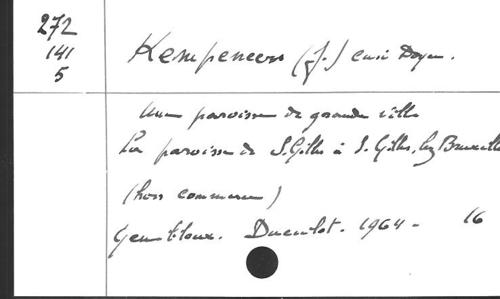 272
141
5
Kempeneers (J.) curé Doyen.
Une paroisse de grande ville
La paroisse de S. Gilles à S. Gilles, lez Bruxelles
(hors commerce)
Gembloux. Duculot. 1964 - 16